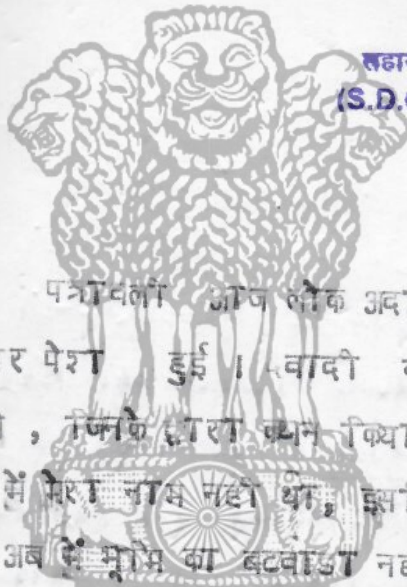 सहा
(S.D.
पत्रावली आज लोक अदा
र पेश हुई । वादी
, जिनके द्वारा कथन किया
में मेरा नाम नही था, इस
अब में भूमि का बटवाडा नह